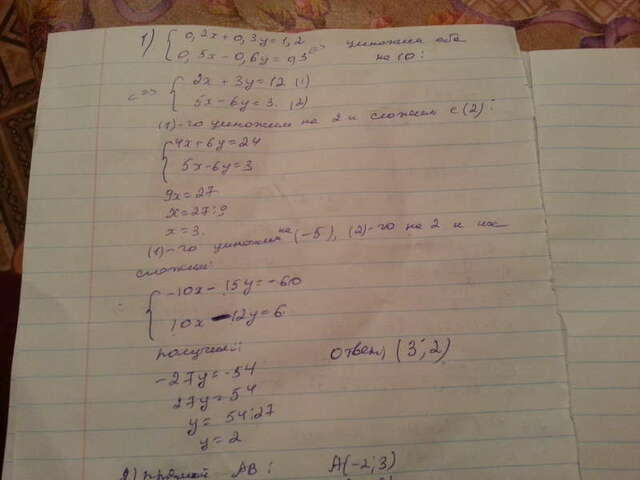 1) { 0,2x + 0,3y = 1,2
0,5x - 0,6y = 0,3 <=> умножим оба
на 10:
<=> { 2x + 3y = 12 (1)
5x - 6y = 3. (2)
(1)-го умножим на 2 и сложим с (2):
{ 4x + 6y = 24
5x - 6y = 3
9x = 27
x = 27:9
x = 3.
(1)-го умножим на (-5), (2)-го на 2 и их
сложим:
{ -10x - 15y = -60
10x - 12y = 6
получим:
Ответ, (3; 2)
-27y = -54
27y = 54
y = 54:27
y = 2
2) прямой AB: A(-2; 3)